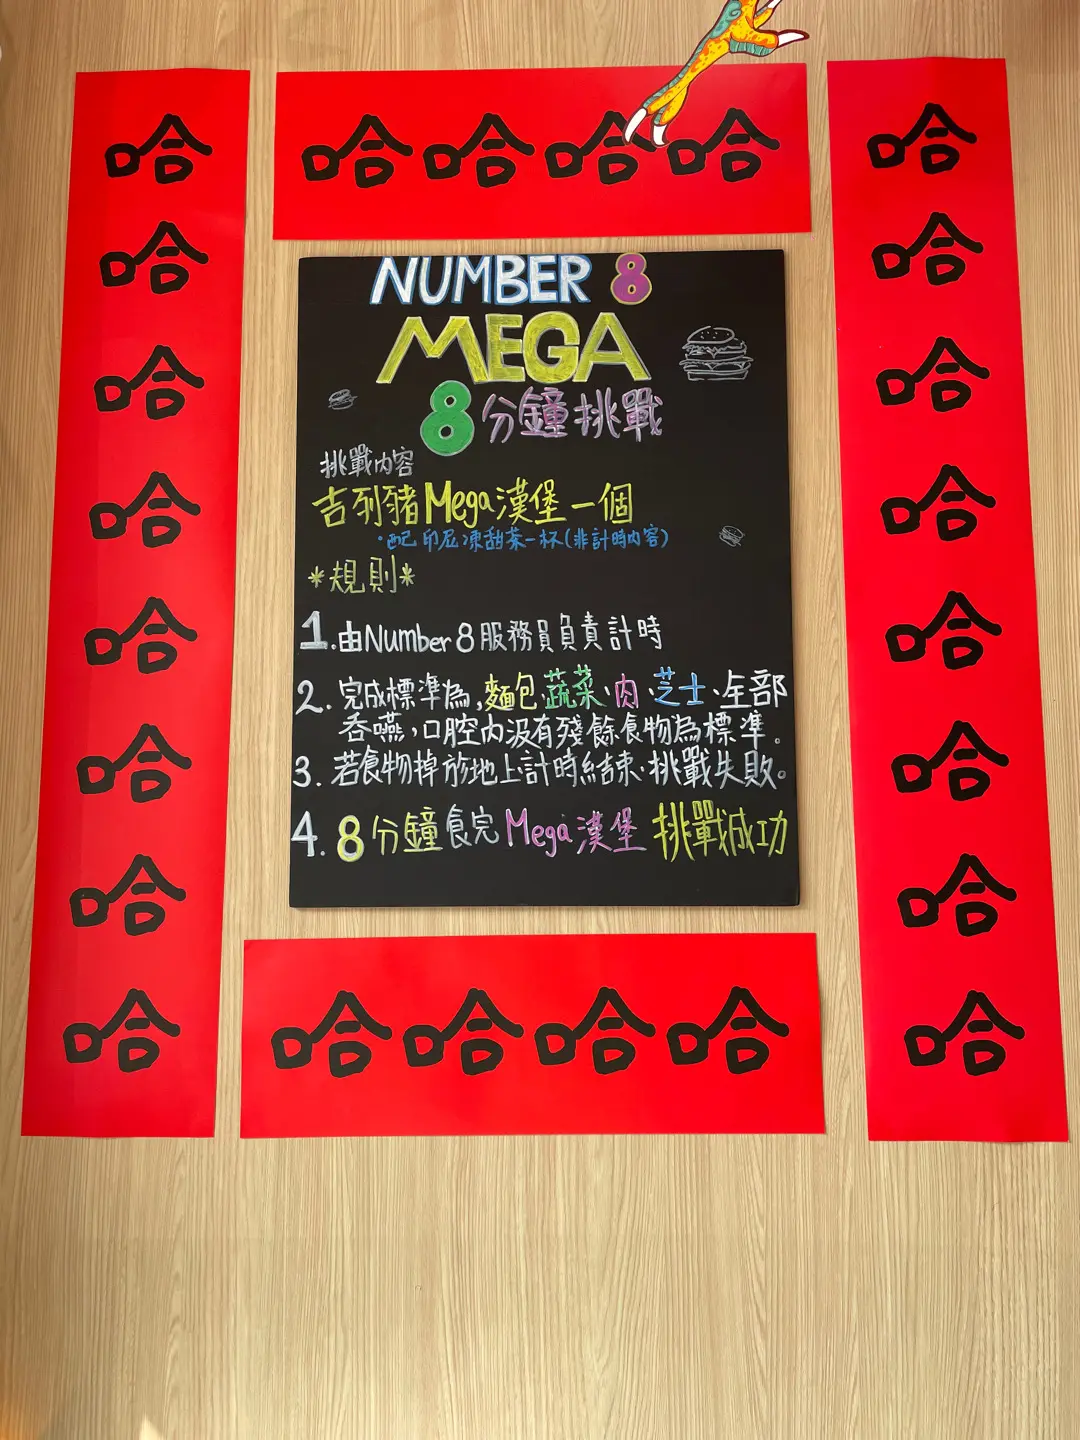 哈哈哈哈
哈
哈
哈
哈
哈
哈
哈
哈
NUMBER 8
MEGA
8分鐘挑戰
挑戰內容
吉列豬Mega漢堡一個
·配印尼凍甜茶一杯(非計時內容)
*規則*
1.由Number 8服務員負責計時
2.完成標準為,麵包、蔬菜、肉、芝士、全部
吞嚥,口腔內沒有殘餘食物為標準。
3.若食物掉於地上,計時結束,挑戰失敗。
4.8分鐘食完Mega漢堡 挑戰成功
哈
哈
哈
哈
哈
哈
哈
哈
哈哈哈哈